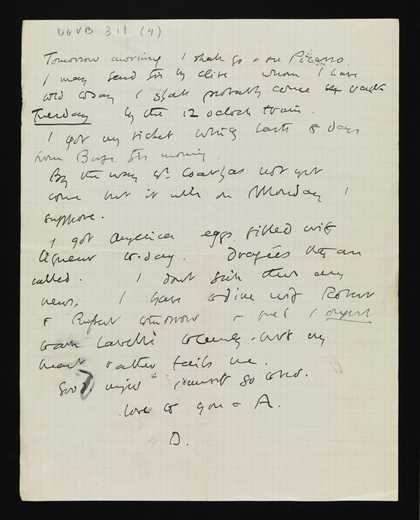 Tomorrow morning I shall go & see Picasso.
I may send this by Clive whom I have
told today I shall probably come back
Tuesday by the 12 o clock train.
I got my ticket which lasts 8 days
from this morning.
By the way has not yet
come but it will on Monday I
suppose.
I got Angelica eggs filled with
liqueur to-day. Dragées they are
called. I don't think there any
news. I have to dine with Robert
& tomorrow & I expect
but my
heart rather fails me.
Good night I must go to bed.
love to you & A.
D.